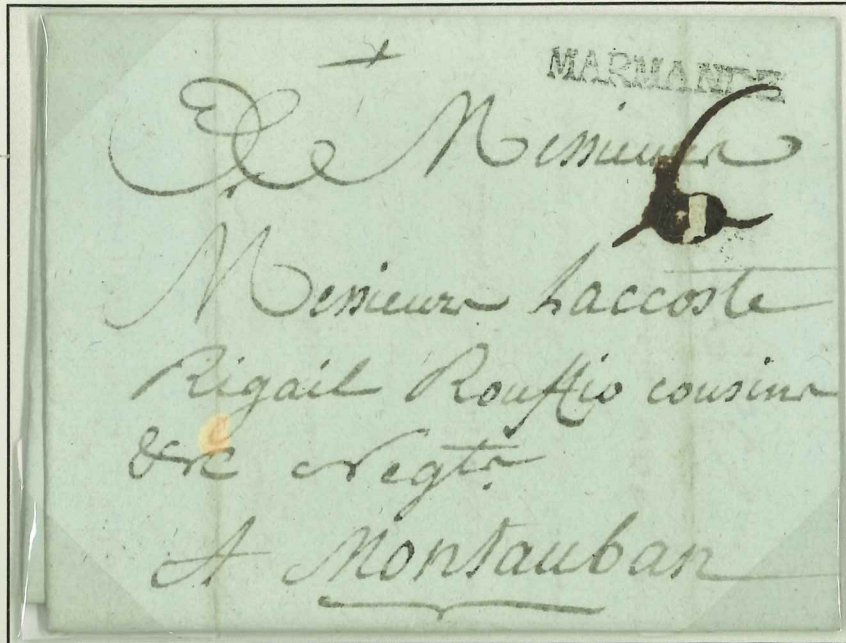 MARMANDE
A Messieurs
6
Messieurs Laccoste
Rigail Rouffio cousins
&c Negts
A Montauban